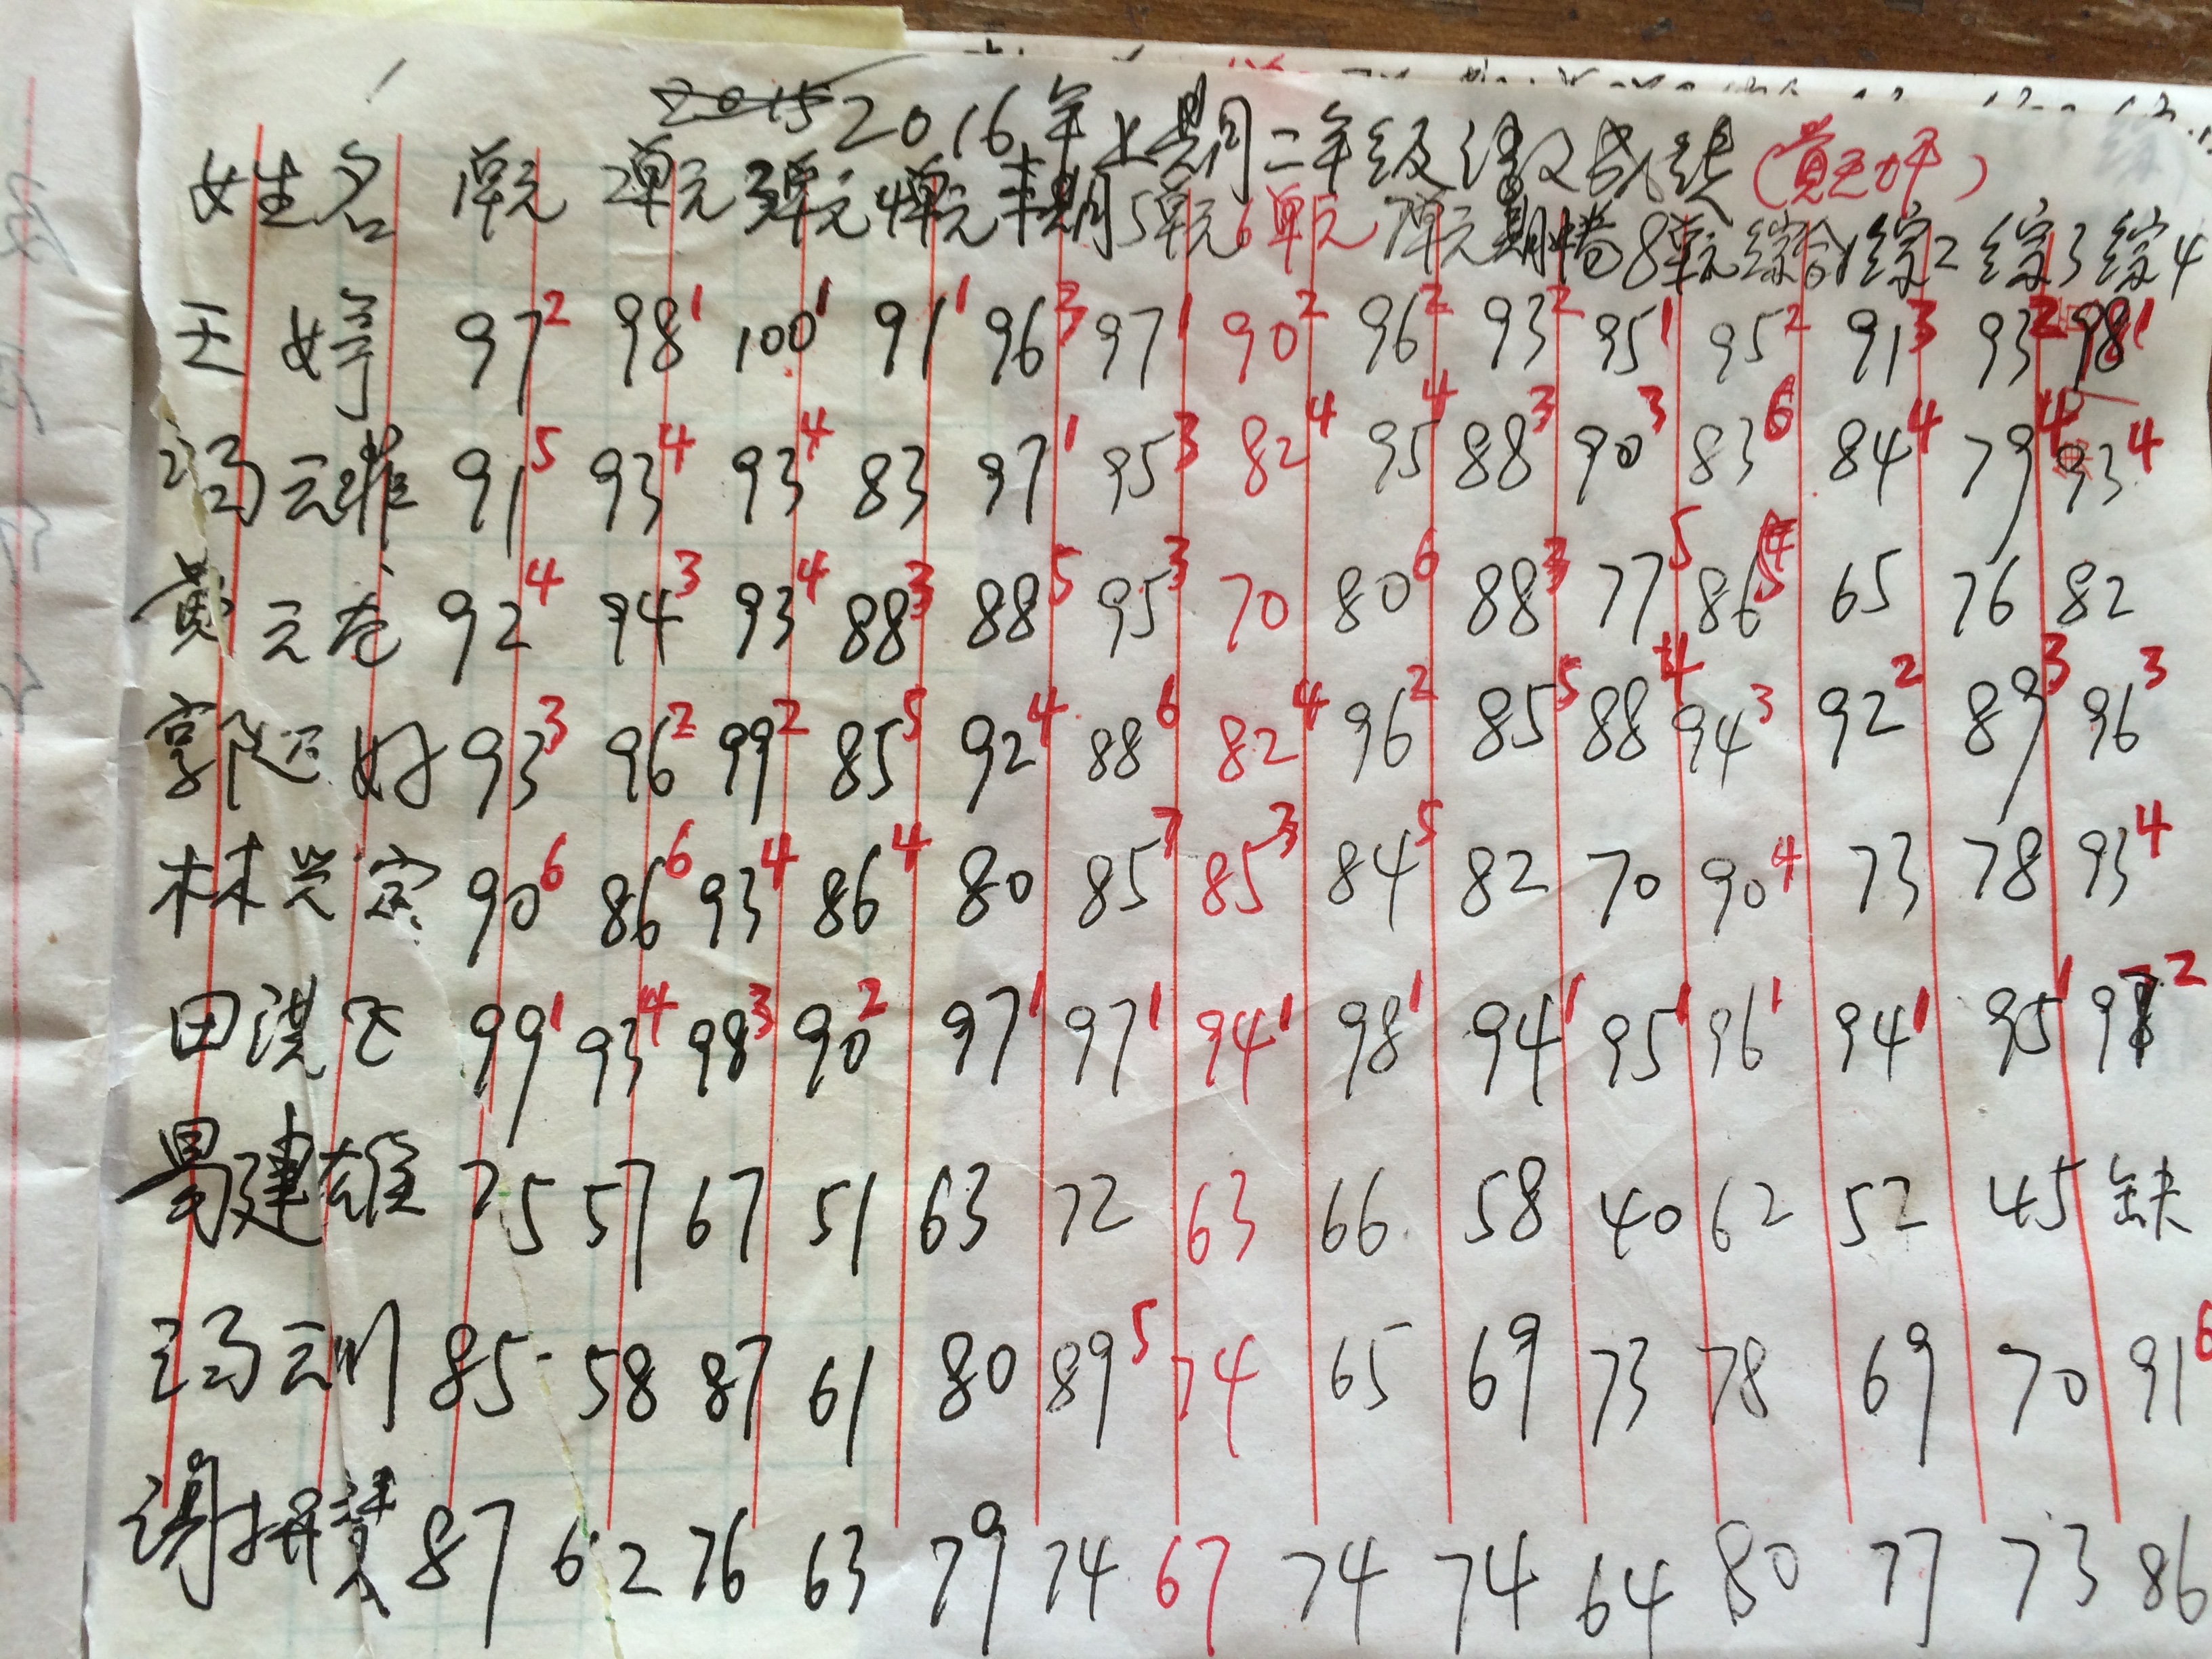 2015 2016年上期二年级 成绩(黄 坪)
姓名 1单元 2单元 3单元 4单元 期 5单元 6单元 7单元 期 8单元 综合1 综2 综3 综4
王婷 97 2 98 1 100 1 91 1 96 3 97 1 90 2 96 2 93 2 95 1 95 2 91 3 93 2 98 1
冯云 91 5 93 4 93 4 83 97 1 95 3 82 4 95 4 88 3 90 3 83 6 84 4 79 4 93 4
黄云 92 4 94 3 93 4 88 3 88 5 95 3 70 80 6 88 3 77 5 86 5 65 76 82
郭 好 93 3 96 2 99 2 85 5 92 4 88 6 82 4 96 2 85 5 88 4 94 3 92 2 89 3 96 3
林 90 6 86 6 93 4 86 4 80 85 7 85 3 84 5 82 70 90 4 73 78 93 4
田洪飞 99 1 93 4 98 3 90 2 97 1 97 1 94 1 98 1 94 1 95 1 96 1 94 1 95 1 97 2
易建雄 75 57 67 51 63 72 63 66 58 40 62 52 45 缺
冯云训 85 58 87 61 80 89 5 74 65 69 73 78 69 70 91 6
谢 87 62 76 63 79 74 67 74 74 64 80 77 73 86